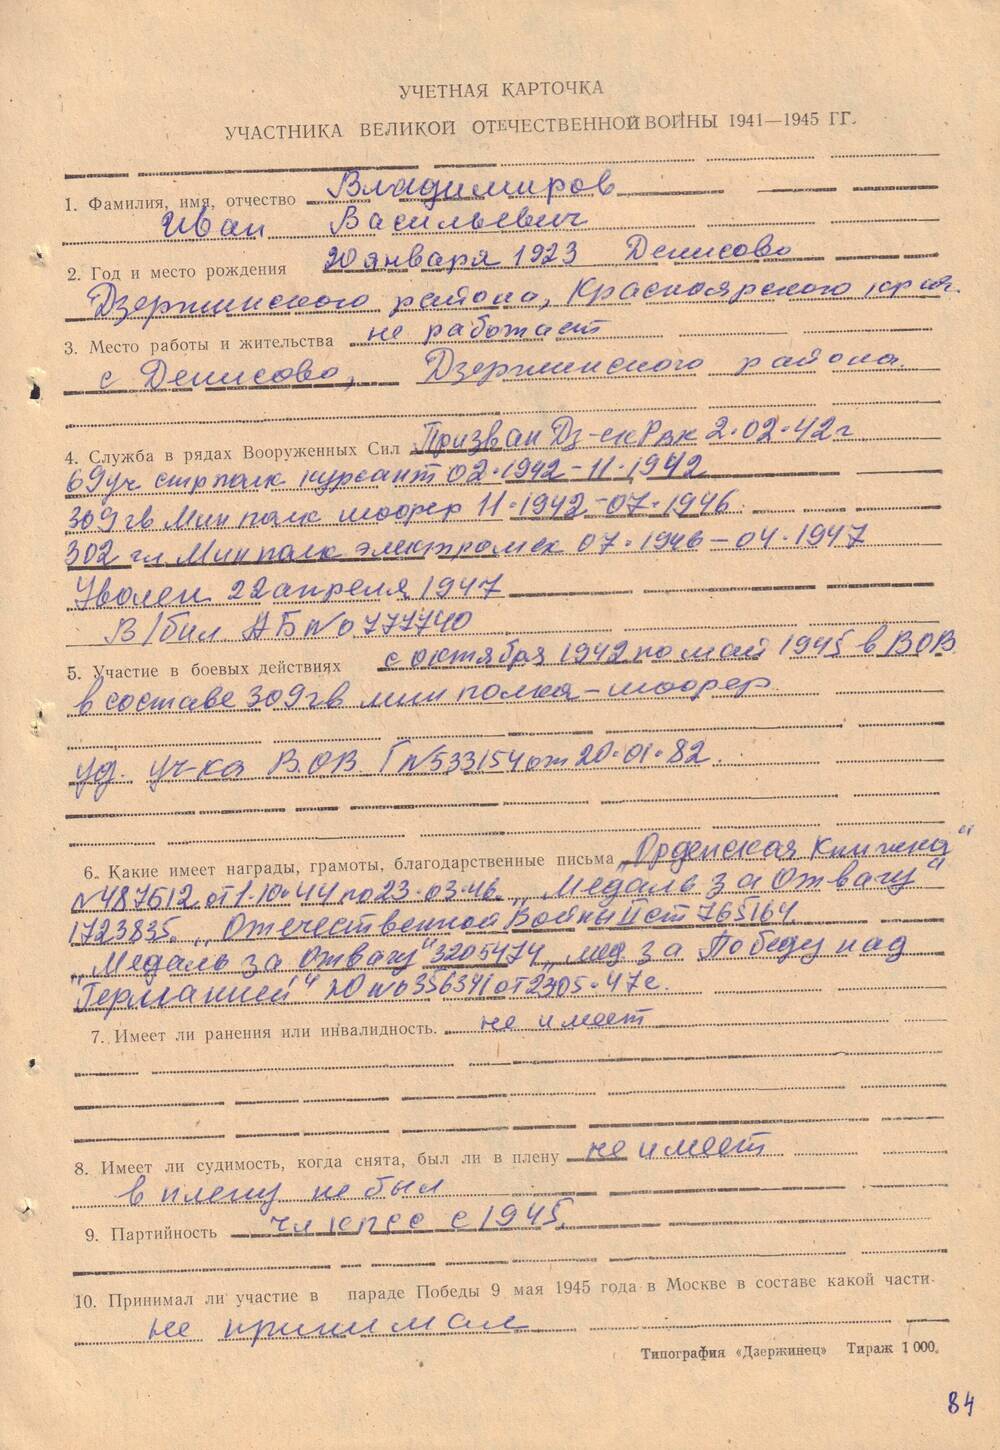 УЧЕТНАЯ КАРТОЧКА
УЧАСТНИКА ВЕЛИКОЙ ОТЕЧЕСТВЕННОЙ ВОЙНЫ 1941—1945 ГГ.
1. Фамилия, имя, отчество Владимиров
Иван Васильевич
2. Год и место рождения 20 января 1923 Денисово
Дзержинского района, Красноярского края.
3. Место работы и жительства не работает
с Денисово, Дзержинского района.
4. Служба в рядах Вооруженных Сил Призван Дз-ск Рвк 2.02.42 г
69 уч стр полк курсант 02.1942-11.1942
309 гв Мин полк шофер 11.1942-07.1946.
302 гл Мин полк электромех 07.1946-04.1947
Уволен 22 апреля 1947
В/бил АБ № 0777740
5. Участие в боевых действиях с октября 1942 по май 1945 в ВОВ.
в составе 309 гв мин полка - шофер
уд. уч-ка В.О.В. Г №533154 от 20.01.82.
6. Какие имеет награды, грамоты, благодарственные письма „Орденская Книжка"
№487612 от 1.10.44 по 23.03.46. „Медаль за Отвагу"
1723835. „Отечественной Войны II ст 765164
„Медаль за Отвагу" 3205474, мед за Победу над
"Германией" № 0356341 от 23.05.47 г.
7. Имеет ли ранения или инвалидность. не имеет
8. Имеет ли судимость, когда снята, был ли в плену не имеет
в плену не был
9. Партийность чл кпсс с 1945.
10. Принимал ли участие в параде Победы 9 мая 1945 года в Москве в составе какой части.
не принимал
Типография «Дзержинец» Тираж 1 000.
84